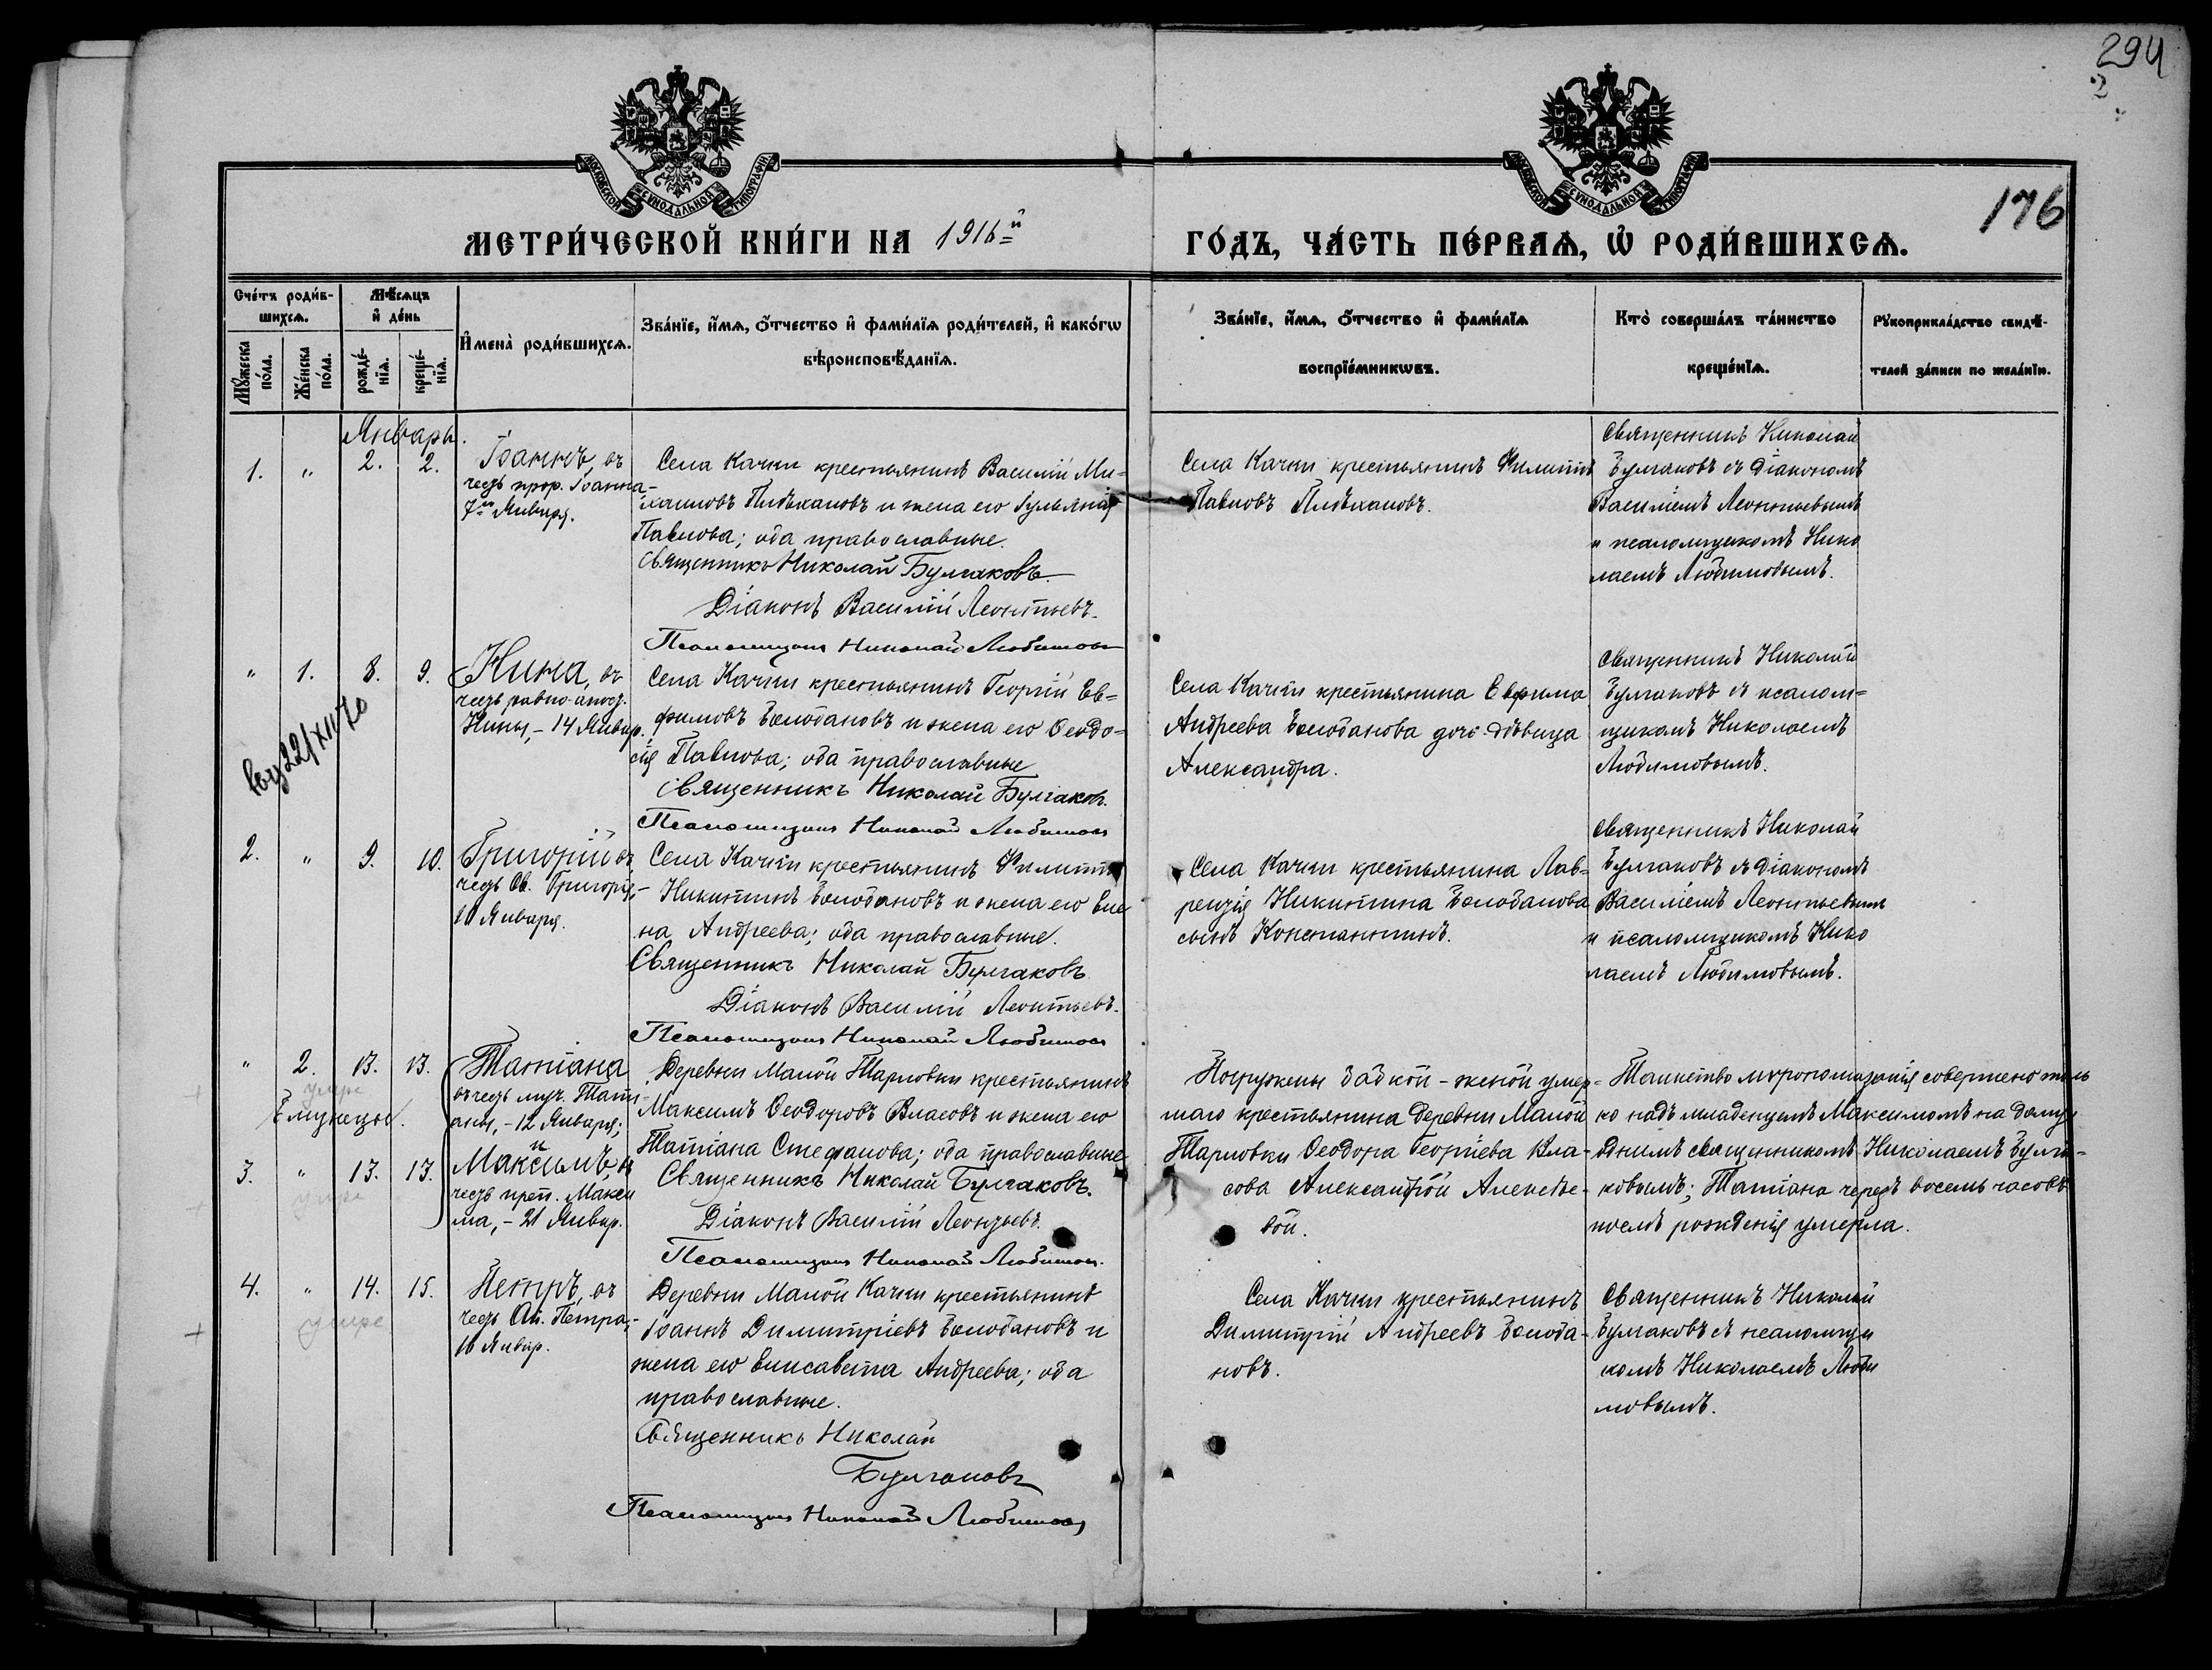 294
2
176
МОСКОВСКОЙ СѴНОДАЛЬНОЙ ТИПОГРАФІИ
МОСКОВСКОЙ СѴНОДАЛЬНОЙ ТИПОГРАФІИ
МЕТРИ́ЧЕСКОЙ КНИ́ГИ НА 1916й
ГО́ДЪ, ЧА́СТЬ ПЕ́РВАѦ, Ѡ҆ РОДИ́ВШИХСѦ.
Сче́тъ роди́в-
шихсѧ.
Мѣ́сѧцъ
и҆ де́нь
Мꙋ́жеска по́ла.
Же́нска по́ла.
рожде́-нїѧ.
креще́-нїѧ.
И҆мена̀ роди́вшихсѧ.
Зва́нїе, и҆́мѧ, ѻ҆́тчество и҆ фами́лїѧ роди́телей, и҆ како́гѡ
вѣроисповѣ́данїѧ.
Зва́нїе, и҆́мѧ, ѻ҆́тчество и҆ фами́лїѧ
воспрїе́мникѡвъ.
Кто̀ соверша́лъ та́инство
креще́нїѧ.
Рꙋкоприкла́дство свидѣ́-
телей за́писи по жела́нїю.
Январь.
1. " 2. 2.
Іоаннъ, въ
честь прор. Іоанна-
7го Января.
Села Качки крестьянинъ Василій Ми-
хаиловъ Плѣхановъ и жена его Іульянія
Павлова; оба православные.
Священникъ Николай Булгаковъ.
Діаконъ Василій Леонтьевъ.
Псаломщикъ Николай Любимовъ
Села Качки крестьянинъ Филиппъ
Павловъ Плѣхановъ.
Священникъ Николай
Булгаковъ съ Діакономъ
Василіемъ Леонтьевымъ
и псаломщикомъ Нико
лаемъ Любимовымъ.
" 1. 8. 9.
Нина, въ
честь равно-апост.
Нины, - 14 Январ.
Села Качки крестьянинъ Георгій Ев-
фимовъ Болобановъ и жена его Ѳеодо-
сія Павлова; оба православные
Священникъ Николай Булгаковъ.
Псаломщикъ Николай Любимовъ
Села Качки крестьянина Евфима
Андреева Болобанова дочь-дѣвица
Александра.
Священникъ Николай
Булгаковъ съ псалом-
щикомъ Николаемъ
Любимовымъ.
2. " 9. 10.
Григорій въ
честь Св. Григорія,-
10 Января.
Села Качки крестьянинъ Филиппъ
Никитинъ Болобановъ и жена его Еле
на Андреева; оба православные.
Священникъ Николай Булгаковъ
Діаконъ Василій Леонтьевъ.
Псаломщикъ Николай Любимовъ
Села Качки крестьянина Лав-
рентія Никитина Болобанова
сынъ Константинъ.
Священникъ Николай
Булгаковъ съ Діакономъ
Василіемъ Леонтьевымъ
и псаломщикомъ Нико
лаемъ Любимовымъ.
" 2. 13. 13.
умре
Близнецы.
Татіана
въ честь муч. Тати-
аны, - 12 Января;
и
3. " 13. 13.
умре
Максимъ, въ
честь преп. Макси
ма, - 21 Январ.
Деревни Малой Тарловки крестьянинъ
Максимъ Ѳеодоровъ Власовъ и жена его
Татіана Стефанова; оба православные
Священникъ Николай Булгаковъ.
Діаконъ Василій Леонтьевъ.
Псаломщикъ Николай Любимовъ.
Погружены бабкой - женой умер-
шаго крестьянина Деревни Малой
Тарловки Ѳеодора Георгіева Вла-
сова Александрой Алексѣе-
вой.
Таинство мѵропомазанія совершено толь
ко надъ младенцемъ Максимомъ на дому
Священникомъ Николаемъ Булга-
ковымъ; Татіана черезъ восемь часовъ
послѣ рожденія умерла.
4. " 14. 15.
умре
Петръ, въ
честь Ап. Петра,-
16 Январ.
Деревни Малой Качки крестьянинъ
Іоаннъ Димитріевъ Болобановъ и
жена его Елисавета Андреева; оба
православные.
Священникъ Николай
Булгаковъ
Псаломщикъ Николай Любимовъ
Села Качки крестьянинъ
Димитрій Андреевъ Болоба-
новъ.
Священникъ Николай
Булгаковъ съ псаломщи
комъ Николаемъ Люби
мовымъ.